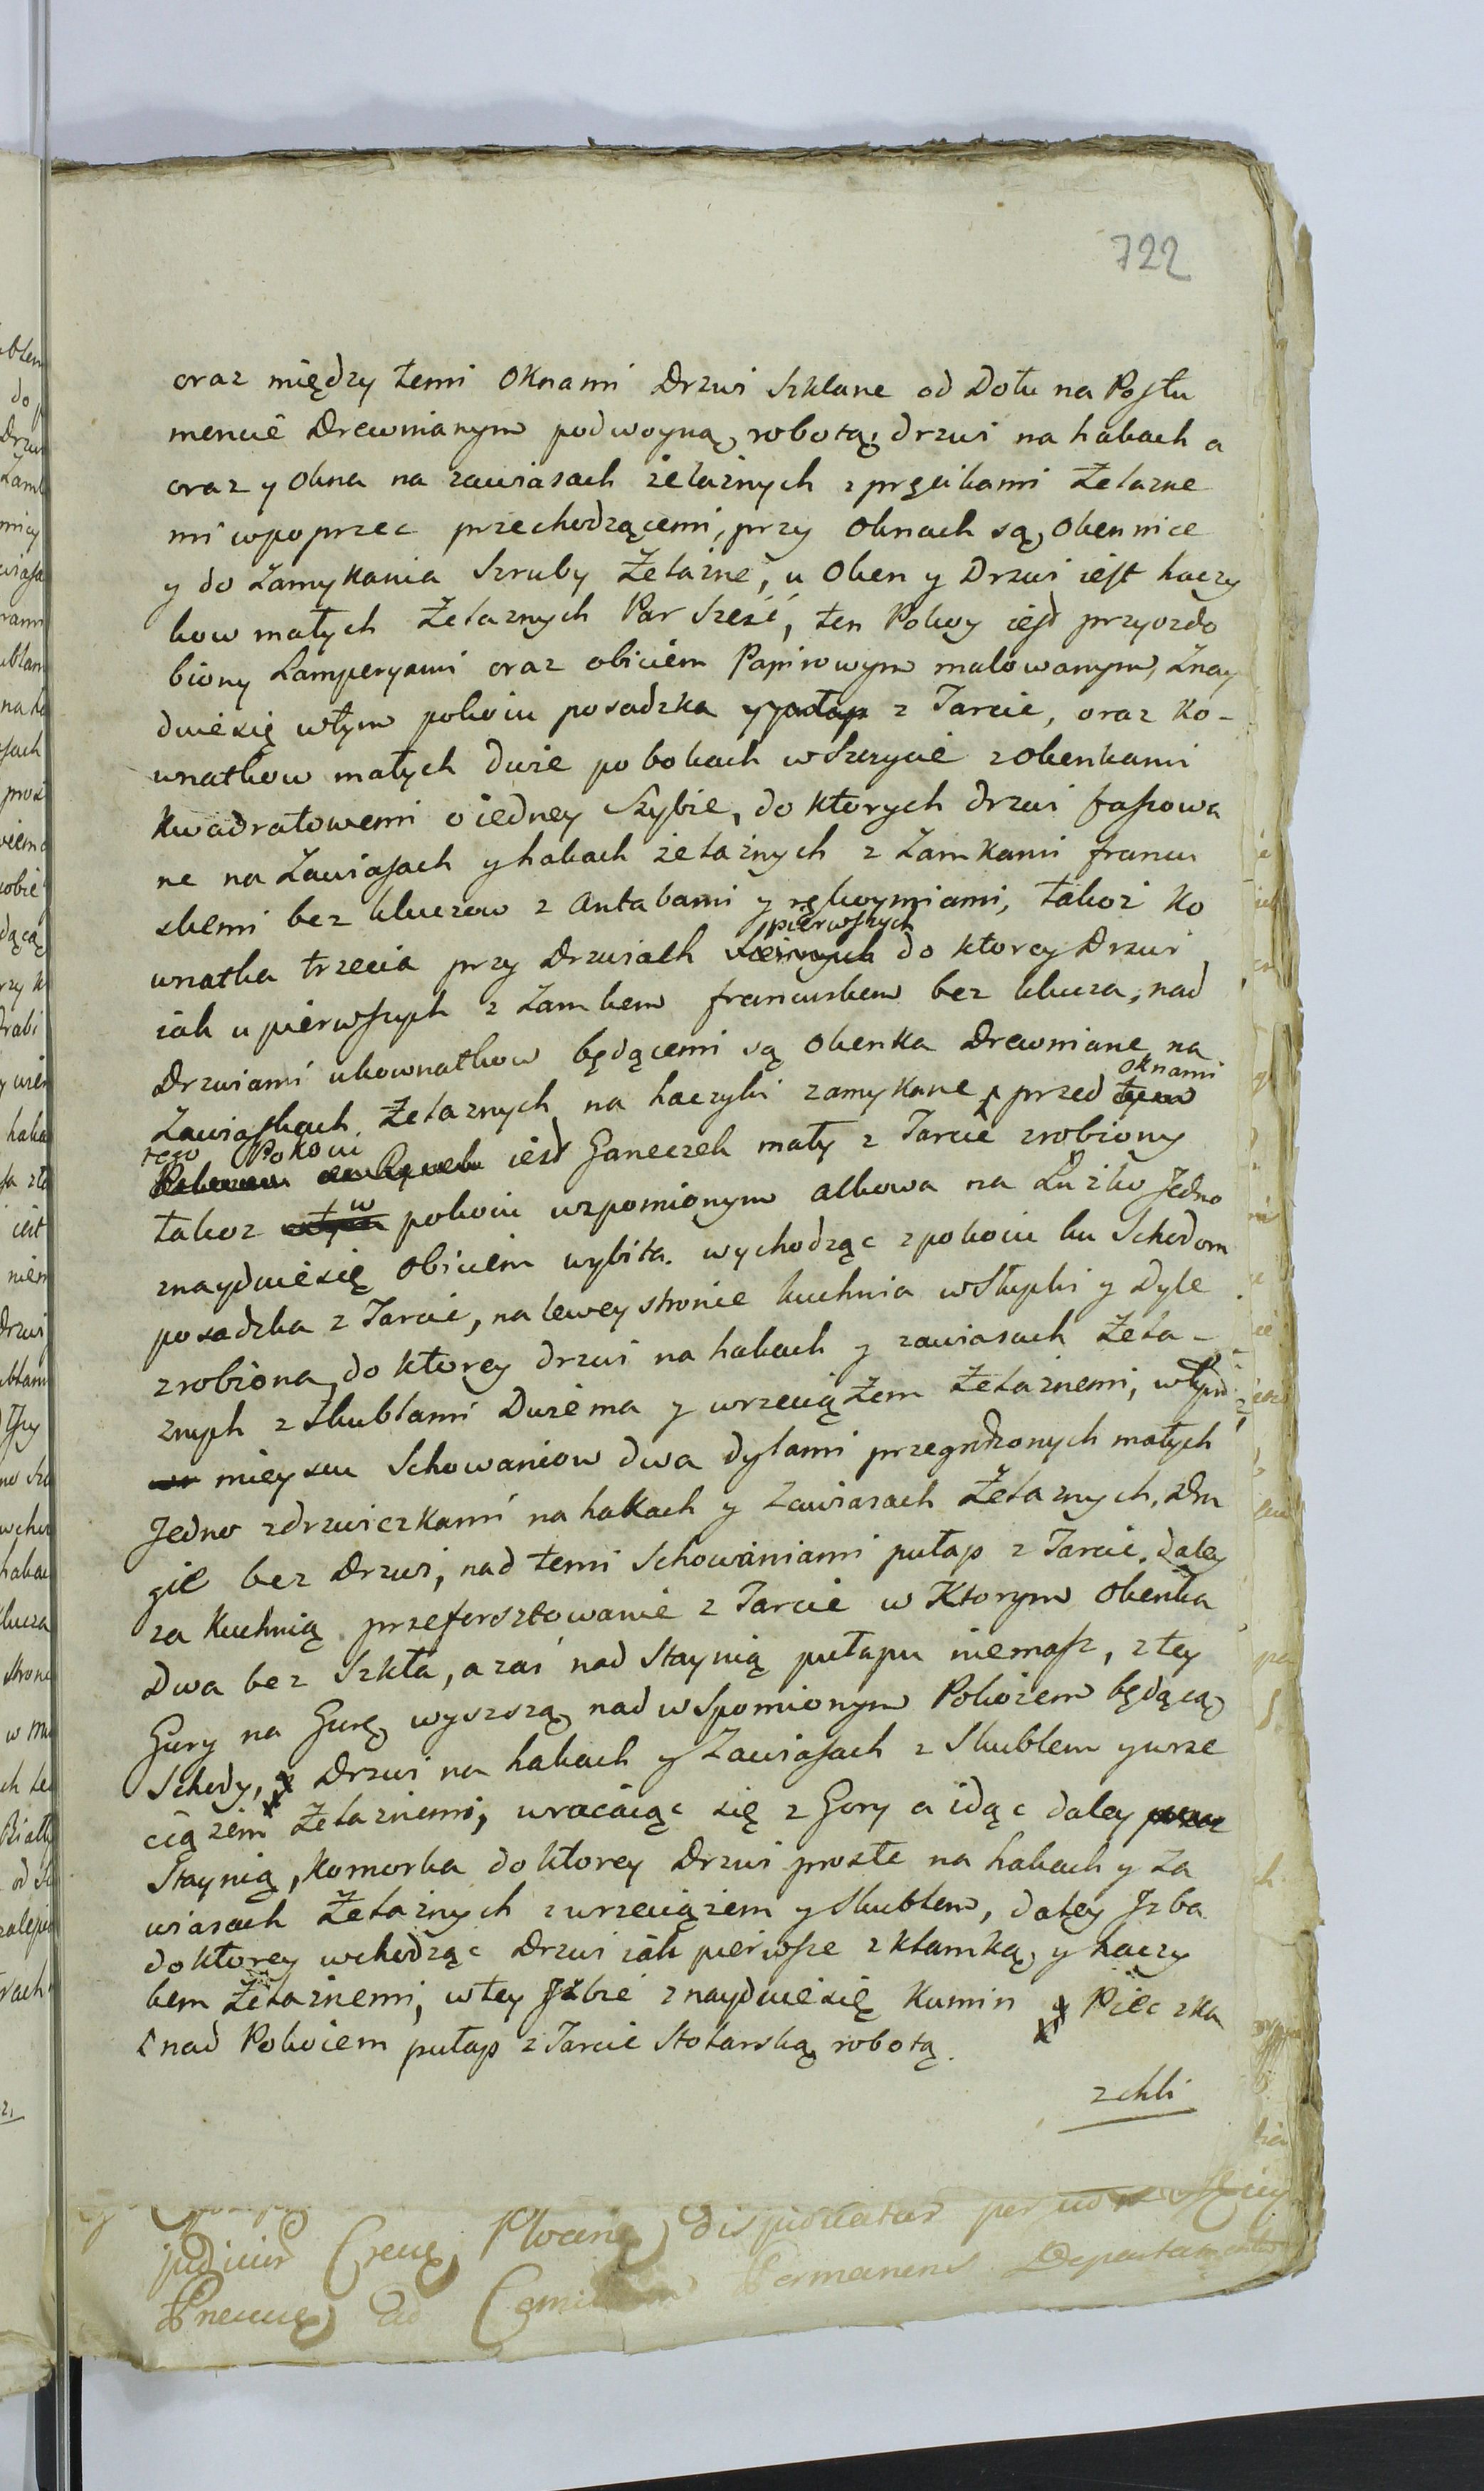 722
oraz między temi Oknami Drzwi Szklane od Dołu na Postu
mencie Drewnianym podwoyną robotą, drzwi na hakach a
oraz y Okna na zawiasach żelaźnych z pręcikami Żelazne
mi wpoprzec przechodzącemi, przy Oknach są Okennice
y do Zamykania Szruby Żelaźne, u Oken y Drzwi iest haczy
kow małych Żelaznych Par Sześć, ten Pokoy iest przyozdo
biony Lamperyami oraz obiciem Papirowym malowanym, Znay
duie się wtym pokoiu posadzka y pułap z Tarcic, oraz Ko-
wnatkow małych dwie po bokach w Szczycie z okenkami
Kwadratowemi o iedney Szybie, do Ktorych drzwi fassowa
ne na Zawiasach y hakach żelaźnych z Zamkami francu
skemi bez kluczow z Antabami y rękoymiami, takoż Ko
pierwszych
wnatka trzecia przy Drzwiach do ktorey Drzwi
iak u pierwszych z Zamkem francuskem bez klucza, nad
Drzwiami ukownatkow będącemi są Okenka Drewniane na
oknami
Zawiaskach Żelaznych na haczyki zamykane, przed tym
tego Pokoiu
iest Ganeczek mały z Tarcic zrobiony
w
takoz pokoiu wzpomionym alkowa na Łużko Jedno
znayduie się Obiciem wybita. wychodząc z pokoiu ku Schodom
posadzka z Tarcic, na lewey stronie kuchnia w Słupki y Dyle
zrobiona, do ktorey drzwi na hakach y zawiasach Żela-
znych z Skublami Dwiema y wrzeciążem Żelaźnemi, wtym
mieyscu Schowaniow dwa dylami przegrodzonych małych
Jedno z drzwiczkami na hakach y Zawiasach Żelaznych, Dru
gie bez Drzwi, nad temi Schowaniami pułap z Tarcic. daley
za Kuchnią przeforsztowanie z Tarcic w Ktorym Okenka
Dwa bez Szkła, a zaś nad Staynią pułapu niemasz, z tey
Gury na Gurę wyszszą nad wspomionym Pokoiem będącą
Schody, Drzwi na hakach y Zawiasach z Skublem y wrze
ciążem Żelaźnemi, wracaiąc się z Gory a idąc daley
Staynią, Komorka do ktorey Drzwi proste na hakach y Za
wiasach Żelaźnych z wrzeciążem y Skublem, daley Jzba
do ktorey wchodząc Drzwi iak pierwsze z klamką y haczy
kem Żelaźnemi, w tey Jzbie znayduie się Kumin y Piec zka
nad Pokoiem pułap z Tarcic Stolarską robotą.
z chli